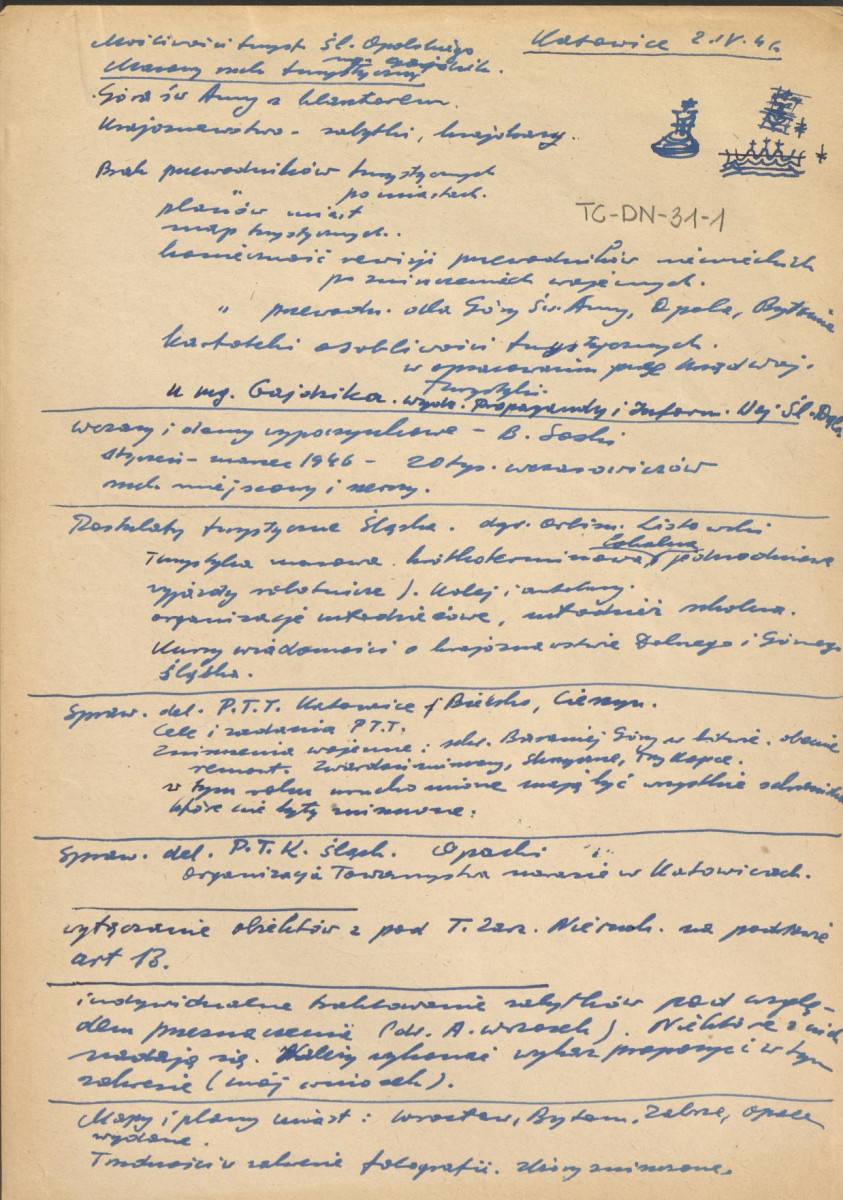 Możliwości turyst. Śl. Opolskiego
Katowice 2.IV.46
Masowy ruch turystyczny
Góra św Anny z klasztorem.
Krajoznawstwo - zabytki, krajobrazy.
Brak przewodników turystycznych
" po miastach.
planów miast
TC-DN-31-1
map turystycznych.
konieczność rewizji przewodników niemieckich
po zniszczeniach wojennych.
" przewodn. dla Góry Św. Anny, Opola, Bytomia
kartoteki osobliwości turystycznych.
w opracowaniu przez Urząd Woj.
turystyki.
u mg. Gajdzika. wydz. Propagandy i Inform. Woj. Śl.-Dąbr.
wczasy i domy wypoczynkowe - B. Soski
styczeń - marzec 1946 - 20 tys. wczasowiczów
ruch miejscowy i szerszy.
Postulaty turystyczne Śląska. dyr. Orbisu. Listowski
lokalna
Turystyka masowa krótkoterminowa, jednodniowe
wyjazdy robotnicze). Kolej i autobusy.
organizacje młodzieżowe, młodzież szkolna.
Kursy wiadomości o krajoznawstwie Dolnego i Górnego
Śląska.
Spraw. del. P.T.T. Katowice i Bielsko, Cieszyn.
Cele i zadania P.T.T.
Zniszczenia wojenne: schr. Baraniej Góry w bitwie. obecnie
remont. Zwardoń zniszczony, Skrzyczne, Trzy Kopce.
w tym roku uruchomione mają być wszystkie schroniska
które nie były zniszczone.
Spraw. del. P.T.K. śląsk. Opacki
Organizacja Towarzystwa narazie w Katowicach.
wyłączanie obiektów z pod T. Zarz. Nieruch. na podstawie
art 13.
indywidualne traktowanie zabytków pod wzglę-
dem przeznaczenia (dr. A. Wrzosek). Niektóre z nich
nadają się. Należy wykonać wykaz propozycji w tym
zakresie (mój wniosek).
Mapy i plany miast: Wrocław, Bytom, Zabrze, Opole
wydane.
Trudności w zakresie fotografii. zbiory zniszczone.